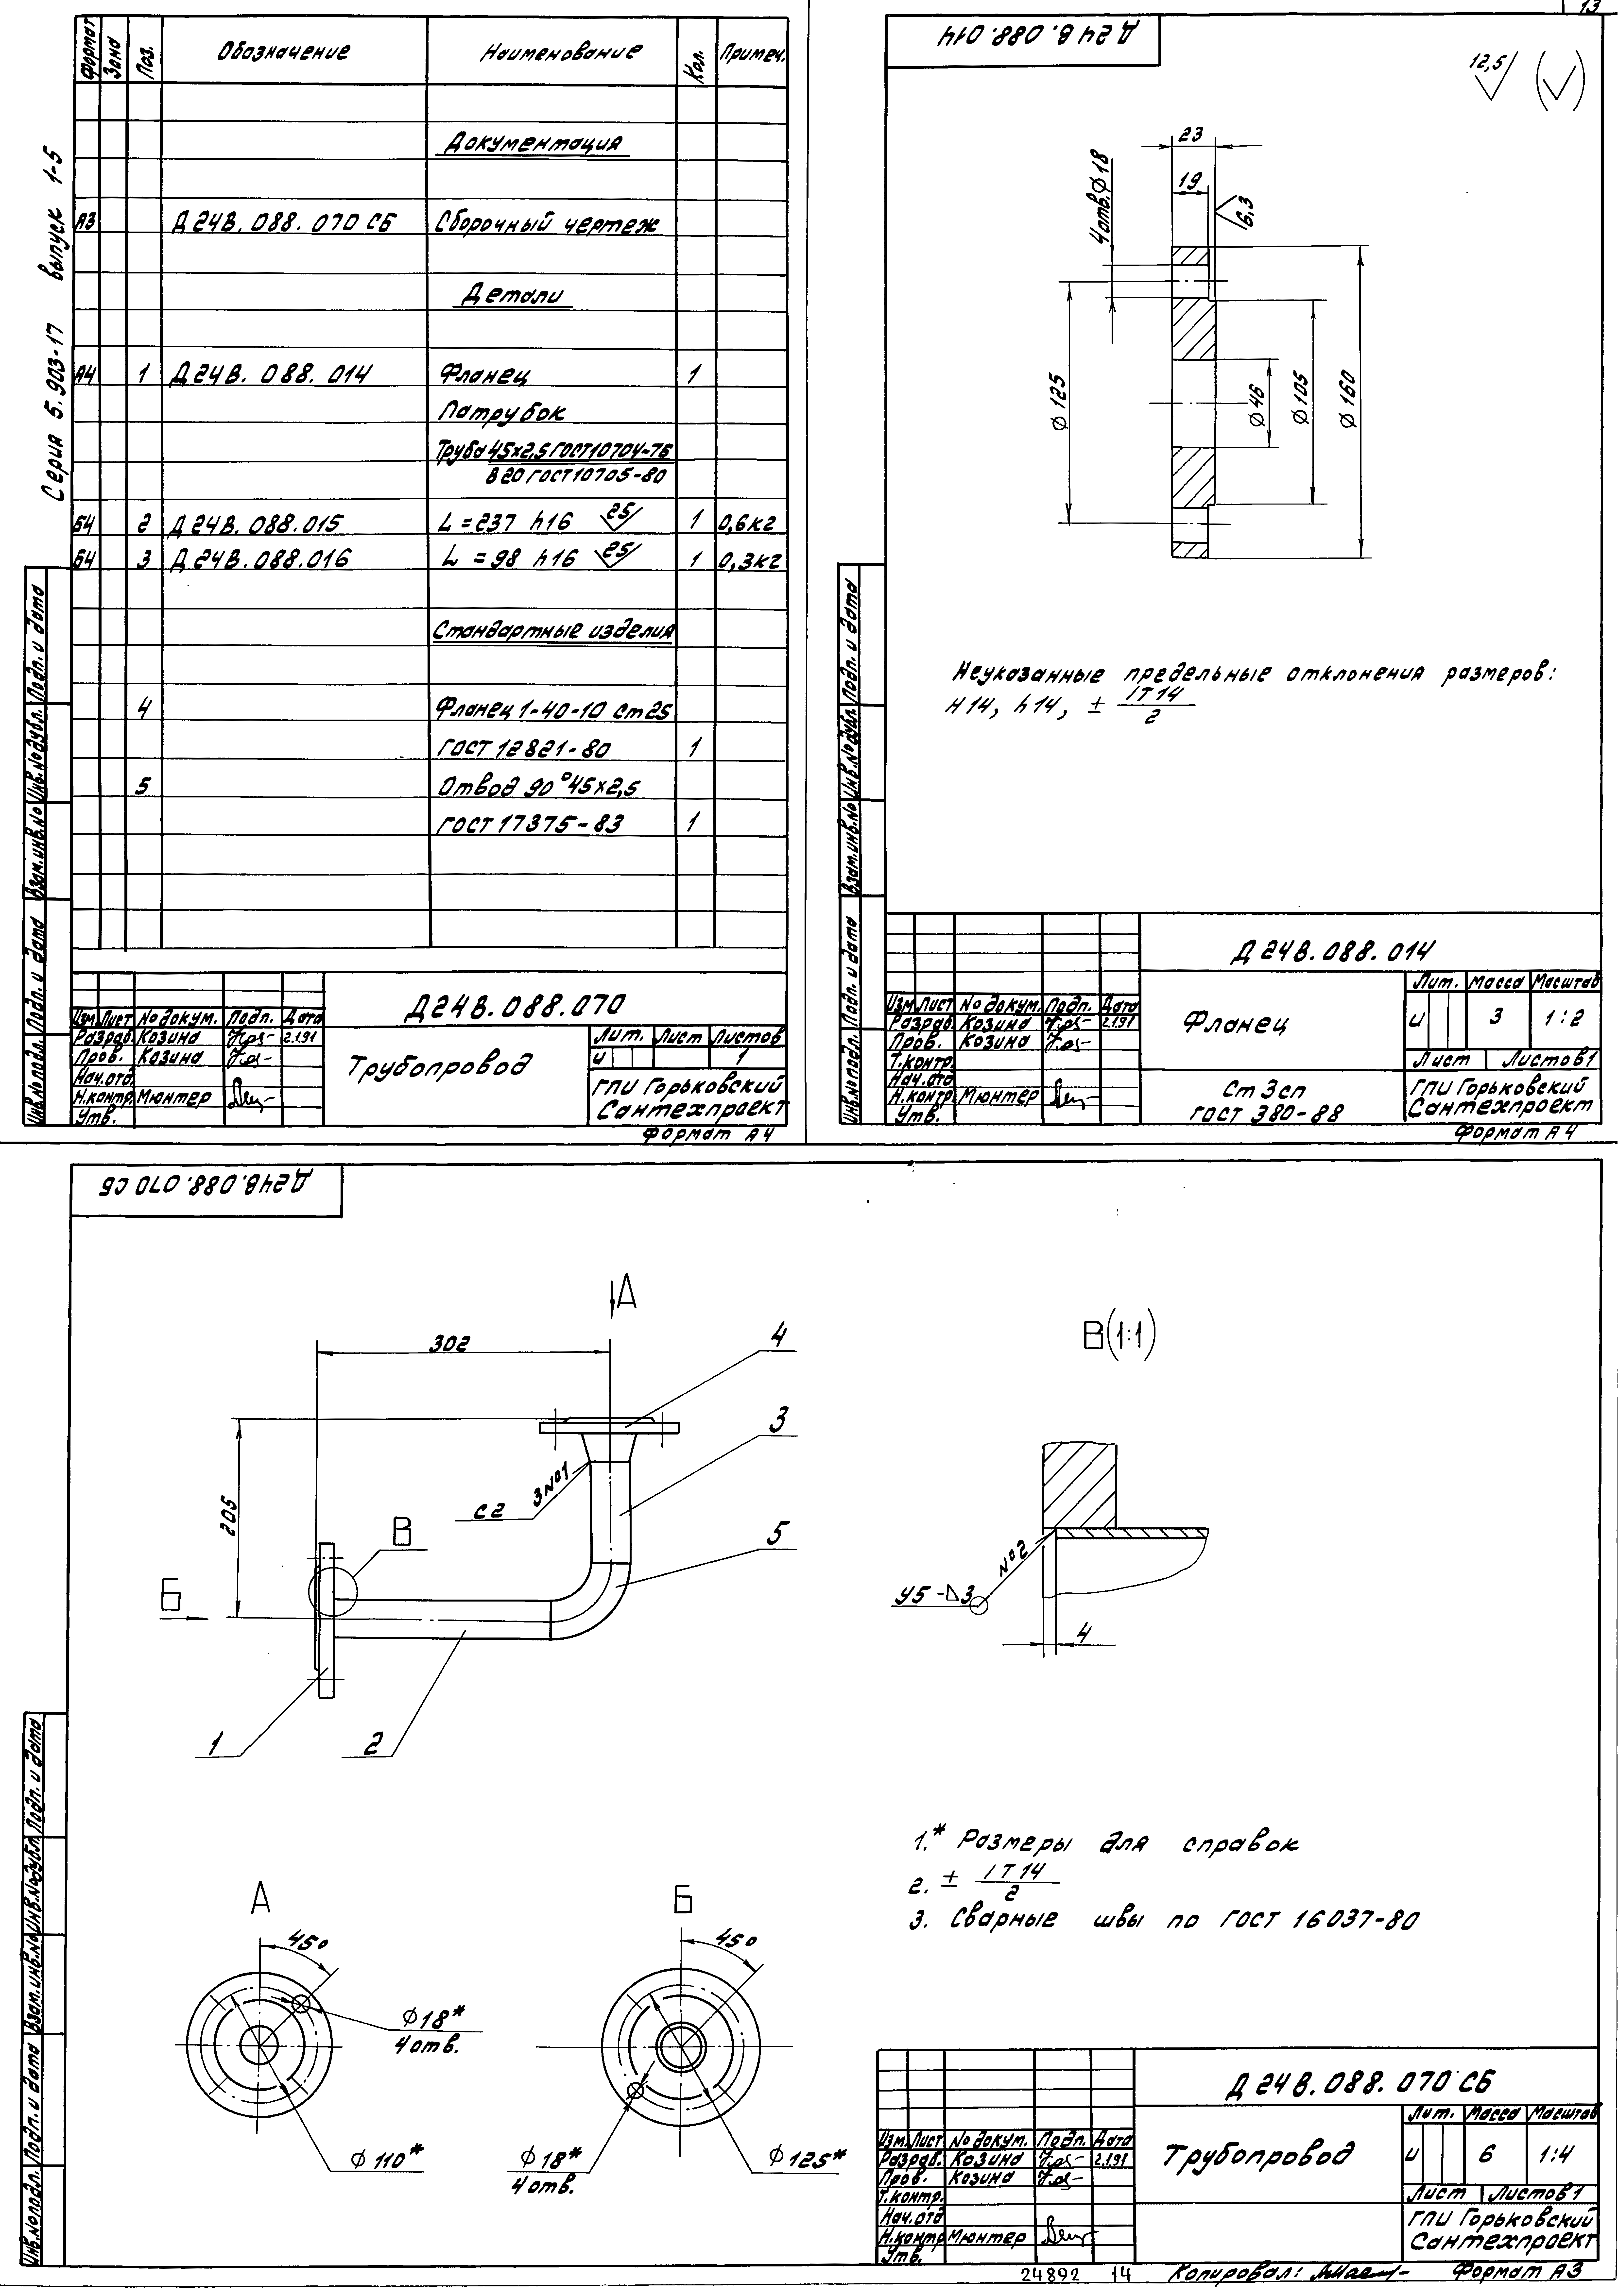 Серия 5.903-17 выпуск 1-5
Формат Зона Поз. Обозначение Наименование Кол. Примеч.
Документация
А3 Д24В.088.070 СБ Сборочный чертеж
Детали
А4 1 Д24В.088.014 Фланец 1
Патрубок
Труба 45х2,5 ГОСТ 10704-76
В20 ГОСТ 10705-80
Б4 2 Д24В.088.015 L=237 h16 25 1 0,6кг
Б4 3 Д24В.088.016 L=98 h16 25 1 0,3кг
Стандартные изделия
4 Фланец 1-40-10 ст25
ГОСТ 12821-80 1
5 Отвод 90°45х2,5
ГОСТ 17375-83 1
Инв.№подл. Подп. и дата Взам.инв.№ Инв.№дубл. Подп. и дата
Д24В.088.070
Изм. Лист № докум. Подп. Дата
Разраб. Козина 2.1.91
Пров. Козина
Нач.отд.
Н.контр. Мюнтер
Утв.
Трубопровод
Лит. Лист Листов
и 1
ГПИ Горьковский
Сантехпроект
Формат А4
13
Д24В.088.014
12,5
23
19
6,3
4отв.Ø18
Ø125
Ø46
Ø105
Ø160
Неуказанные предельные отклонения размеров:
Н14, h14, ± IT14
2
Инв.№подл. Подп. и дата Взам.инв.№ Инв.№дубл. Подп. и дата
Д24В.088.014
Изм. Лист № докум. Подп. Дата
Разраб. Козина 2.1.91
Пров. Козина
Т.контр.
Нач.отд
Н.контр. Мюнтер
Утв.
Фланец
Лит. Масса Масштаб
и 3 1:2
Лист Листов 1
Ст 3сп
ГОСТ 380-88
ГПИ Горьковский
Сантехпроект
Формат А4
Д24В.088.070 СБ
А
302
4
3
205
С2
3№1
В
5
Б
1
2
В(1:1)
№2
У5-⊿3
4
1.* Размеры для справок
2. ± IT14
2
3. Сварные швы по ГОСТ 16037-80
А
45°
Ø18*
4 отв.
Ø110*
Б
45°
Ø18*
4 отв.
Ø125*
Инв.№подл. Подп. и дата Взам.инв.№ Инв.№дубл. Подп. и дата
Д24В.088.070 СБ
Изм. Лист № докум. Подп. Дата
Разраб. Козина 2.1.91
Пров. Козина
Т.контр.
Нач.отд
Н.контр Мюнтер
Утв.
Трубопровод
Лит. Масса Масштаб
и 6 1:4
Лист Листов 1
ГПИ Горьковский
Сантехпроект
24892 14
Копировал: Формат А3